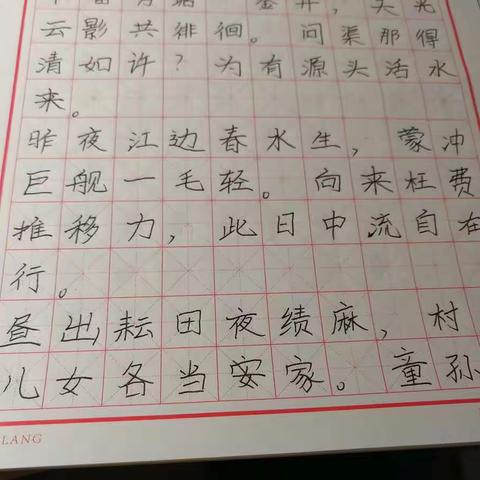 开，天光
云影共徘徊。问渠那得
清如许？为有源头活水
来。
昨夜江边春水生，蒙冲
巨舰一毛轻。向来枉费
推移力，此日中流自在
行。
昼出，耘田夜绩麻，村
儿女各当安家。童孙
LANG